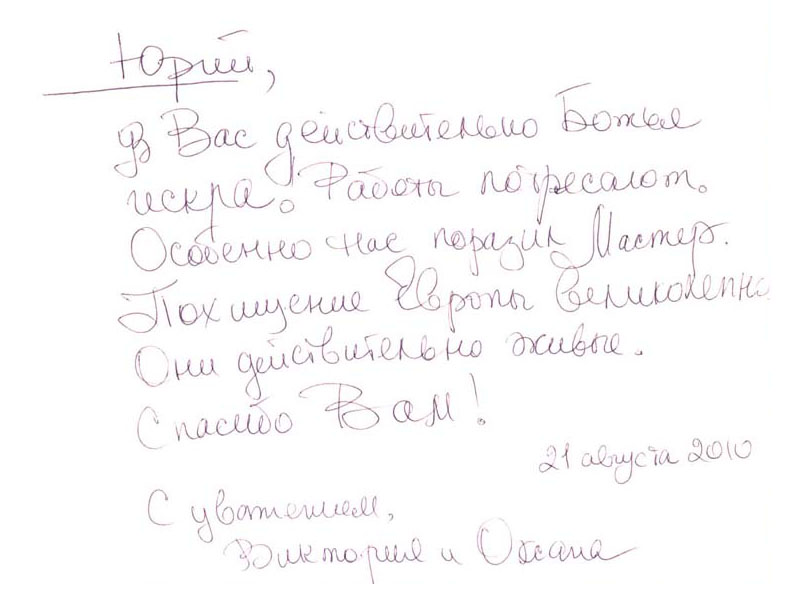 Юрий,
В Вас действительно Божья
искра. Работы потресают.
Особенно нас поразил Мастер.
Похищение Европы великолепно.
Они действительно живые.
Спасибо Вам!
21 августа 2010
С уважением,
Виктория и Оксана